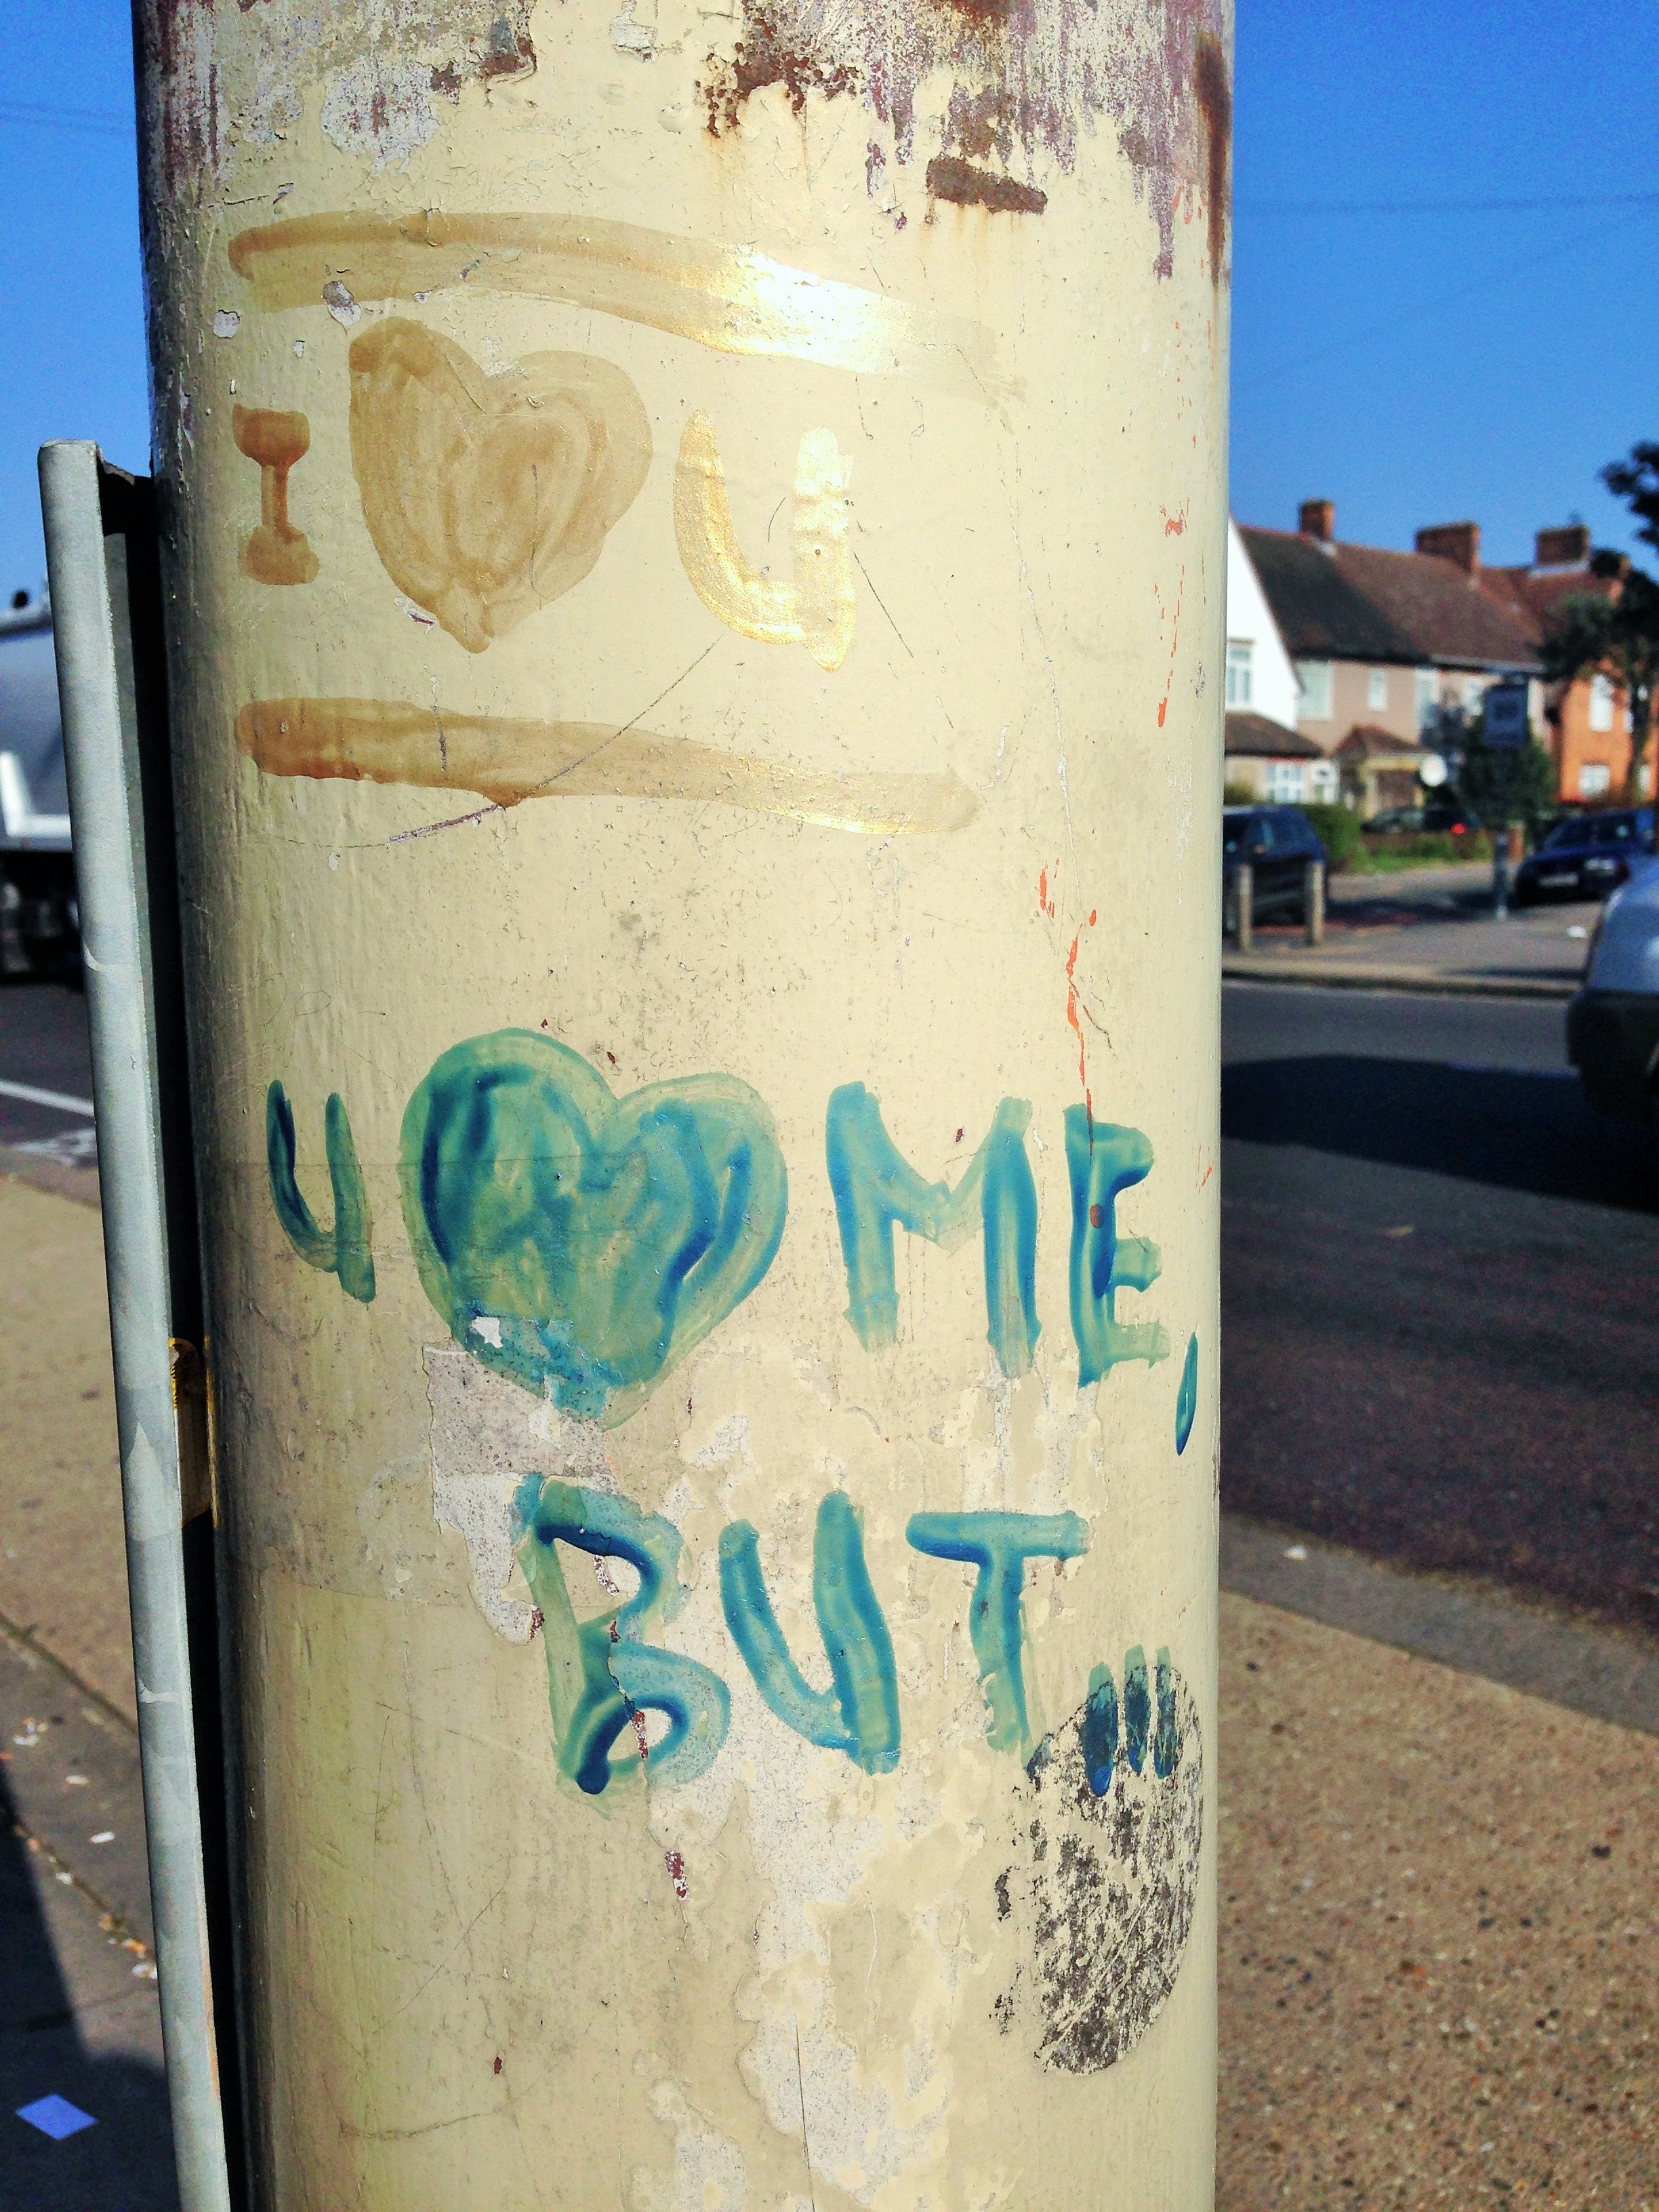 I ♥ U
U ♥ ME,
BUT...